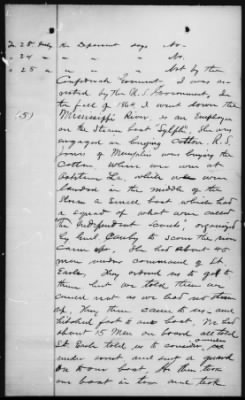 In 23" Inty the Deponent says No-
" 24 " " " " No.
" 25 " " " " Not by the
Confederate Government. I was ar-
rested by the U.S. Government. In
(5) the fall of 1864 I went down the
Mississippi River, as an Employee
on the Steam boat Sylph. She was
engaged in buying cotton. R.S.
Jones of Memphis was buying the
cotton. When we were at
La. while we were
landed in the middle of the
Stream a small boat which had
a squad of what were called
the Independent Scouts, organized
by Genl. Canby to scour the river
Came up. He had about
men under command of Lt.
Earle. They ordered us to go to
them but we told them we
could not as we had no steam
up. They then came to us and
hitched fast to our boat. We had
about 15 Men on board all told
Lt. Earle told us to consider ourselves
under arrest and put a guard
on to our boat. He then took
our boat in tow and took